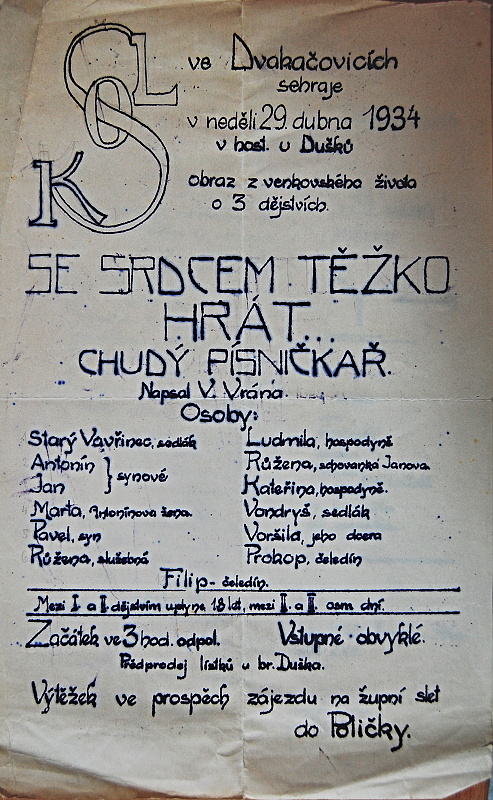 SOKOL
ve Dvakačovicích
sehraje
v neděli 29. dubna 1934
v host. u Dušků
obraz z venkovského života
o 3 dějstvích.
SE SRDCEM TĚŽKO
HRÁT...
CHUDÝ PÍSNIČKAŘ.
Napsal V. Vrána.
Osoby:
Starý Vavřinec, sedlák
Antonín
Jan
} synové
Marta, Antonínova žena.
Pavel, syn
Růžena, služebná
Ludmila, hospodyně
Růžena, schovanka Janova.
Kateřina, hospodyně.
Vondryš, sedlák
Voršila, jeho dcera
Prokop, čeledín
Filip - čeledín.
Mezi I. a II. dějstvím uplyne 18 let, mezi II. a III. osm dní.
Začátek ve 3 hod. odpol. Vstupné obvyklé.
Předprodej lístků u br. Duška.
Výtěžek ve prospěch zájezdu na župní slet
do Poličky.